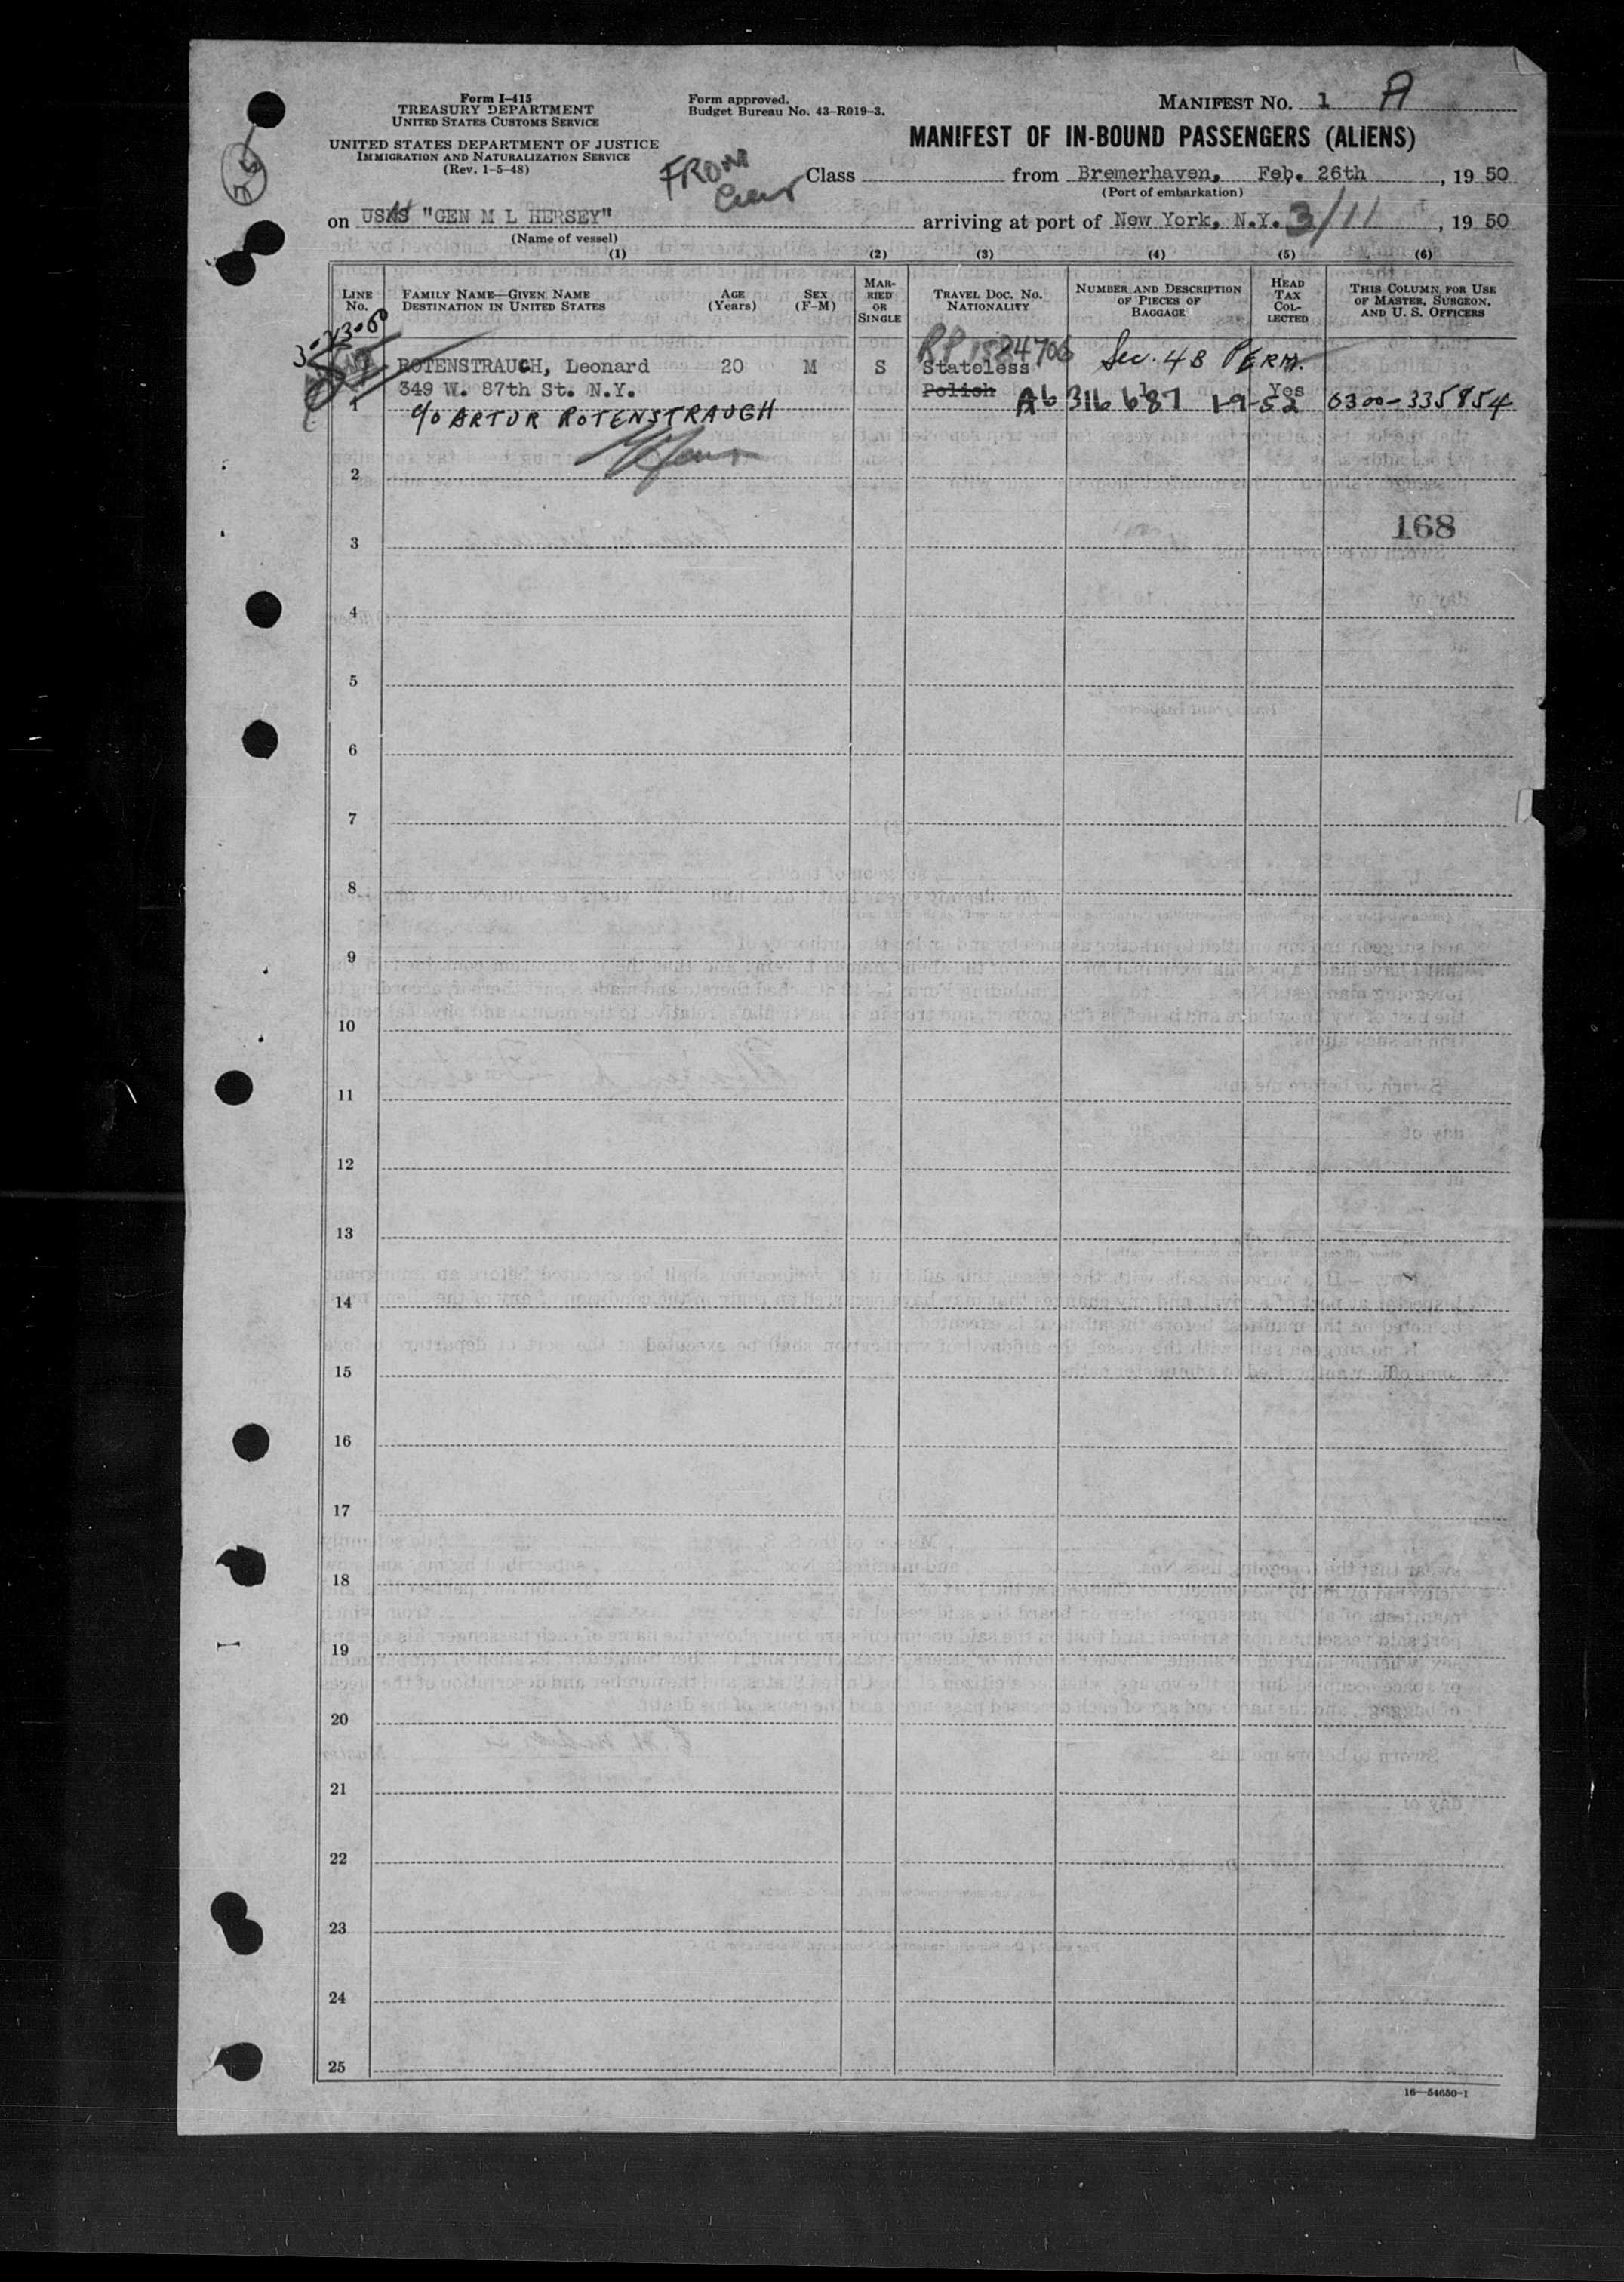 Form I-415
TREASURY DEPARTMENT
UNITED STATES CUSTOMS SERVICE
UNITED STATES DEPARTMENT OF JUSTICE
IMMIGRATION AND NATURALIZATION SERVICE
(Rev. 1-5-48)
Form approved.
Budget Bureau No. 43-R019-3.
MANIFEST NO. 1 A
MANIFEST OF IN-BOUND PASSENGERS (ALIENS)
FROM
Class from Bremerhaven, Feb. 26th, 19 50
(Port of embarkation)
on "GEN M L HERSEY" arriving at port of New York, N.Y. 3/11, 19 50
(Name of vessel)
(1) (2) (3) (4) (5) (6)
LINE NO.
FAMILY NAME—GIVEN NAME
DESTINATION IN UNITED STATES
AGE (Years)
SEX (F-M)
MARRIED OR SINGLE
TRAVEL DOC. NO.
NATIONALITY
NUMBER AND DESCRIPTION OF PIECES OF BAGGAGE
HEAD TAX COLLECTED
THIS COLUMN FOR USE OF MASTER, SURGEON, AND U. S. OFFICERS
ROTENSTRAUCH, Leonard 20 M S Stateless Sec. 4B PERM.
349 W. 87th St. N.Y. Polish Yes
1 c/o ARTUR ROTENSTRAUGH A6 316 687 1-9-52 0300-335854
2
168
3
4
5
6
7
8
9
10
11
12
13
14
15
16
17
18
19
20
21
22
23
24
25
16—54650-1